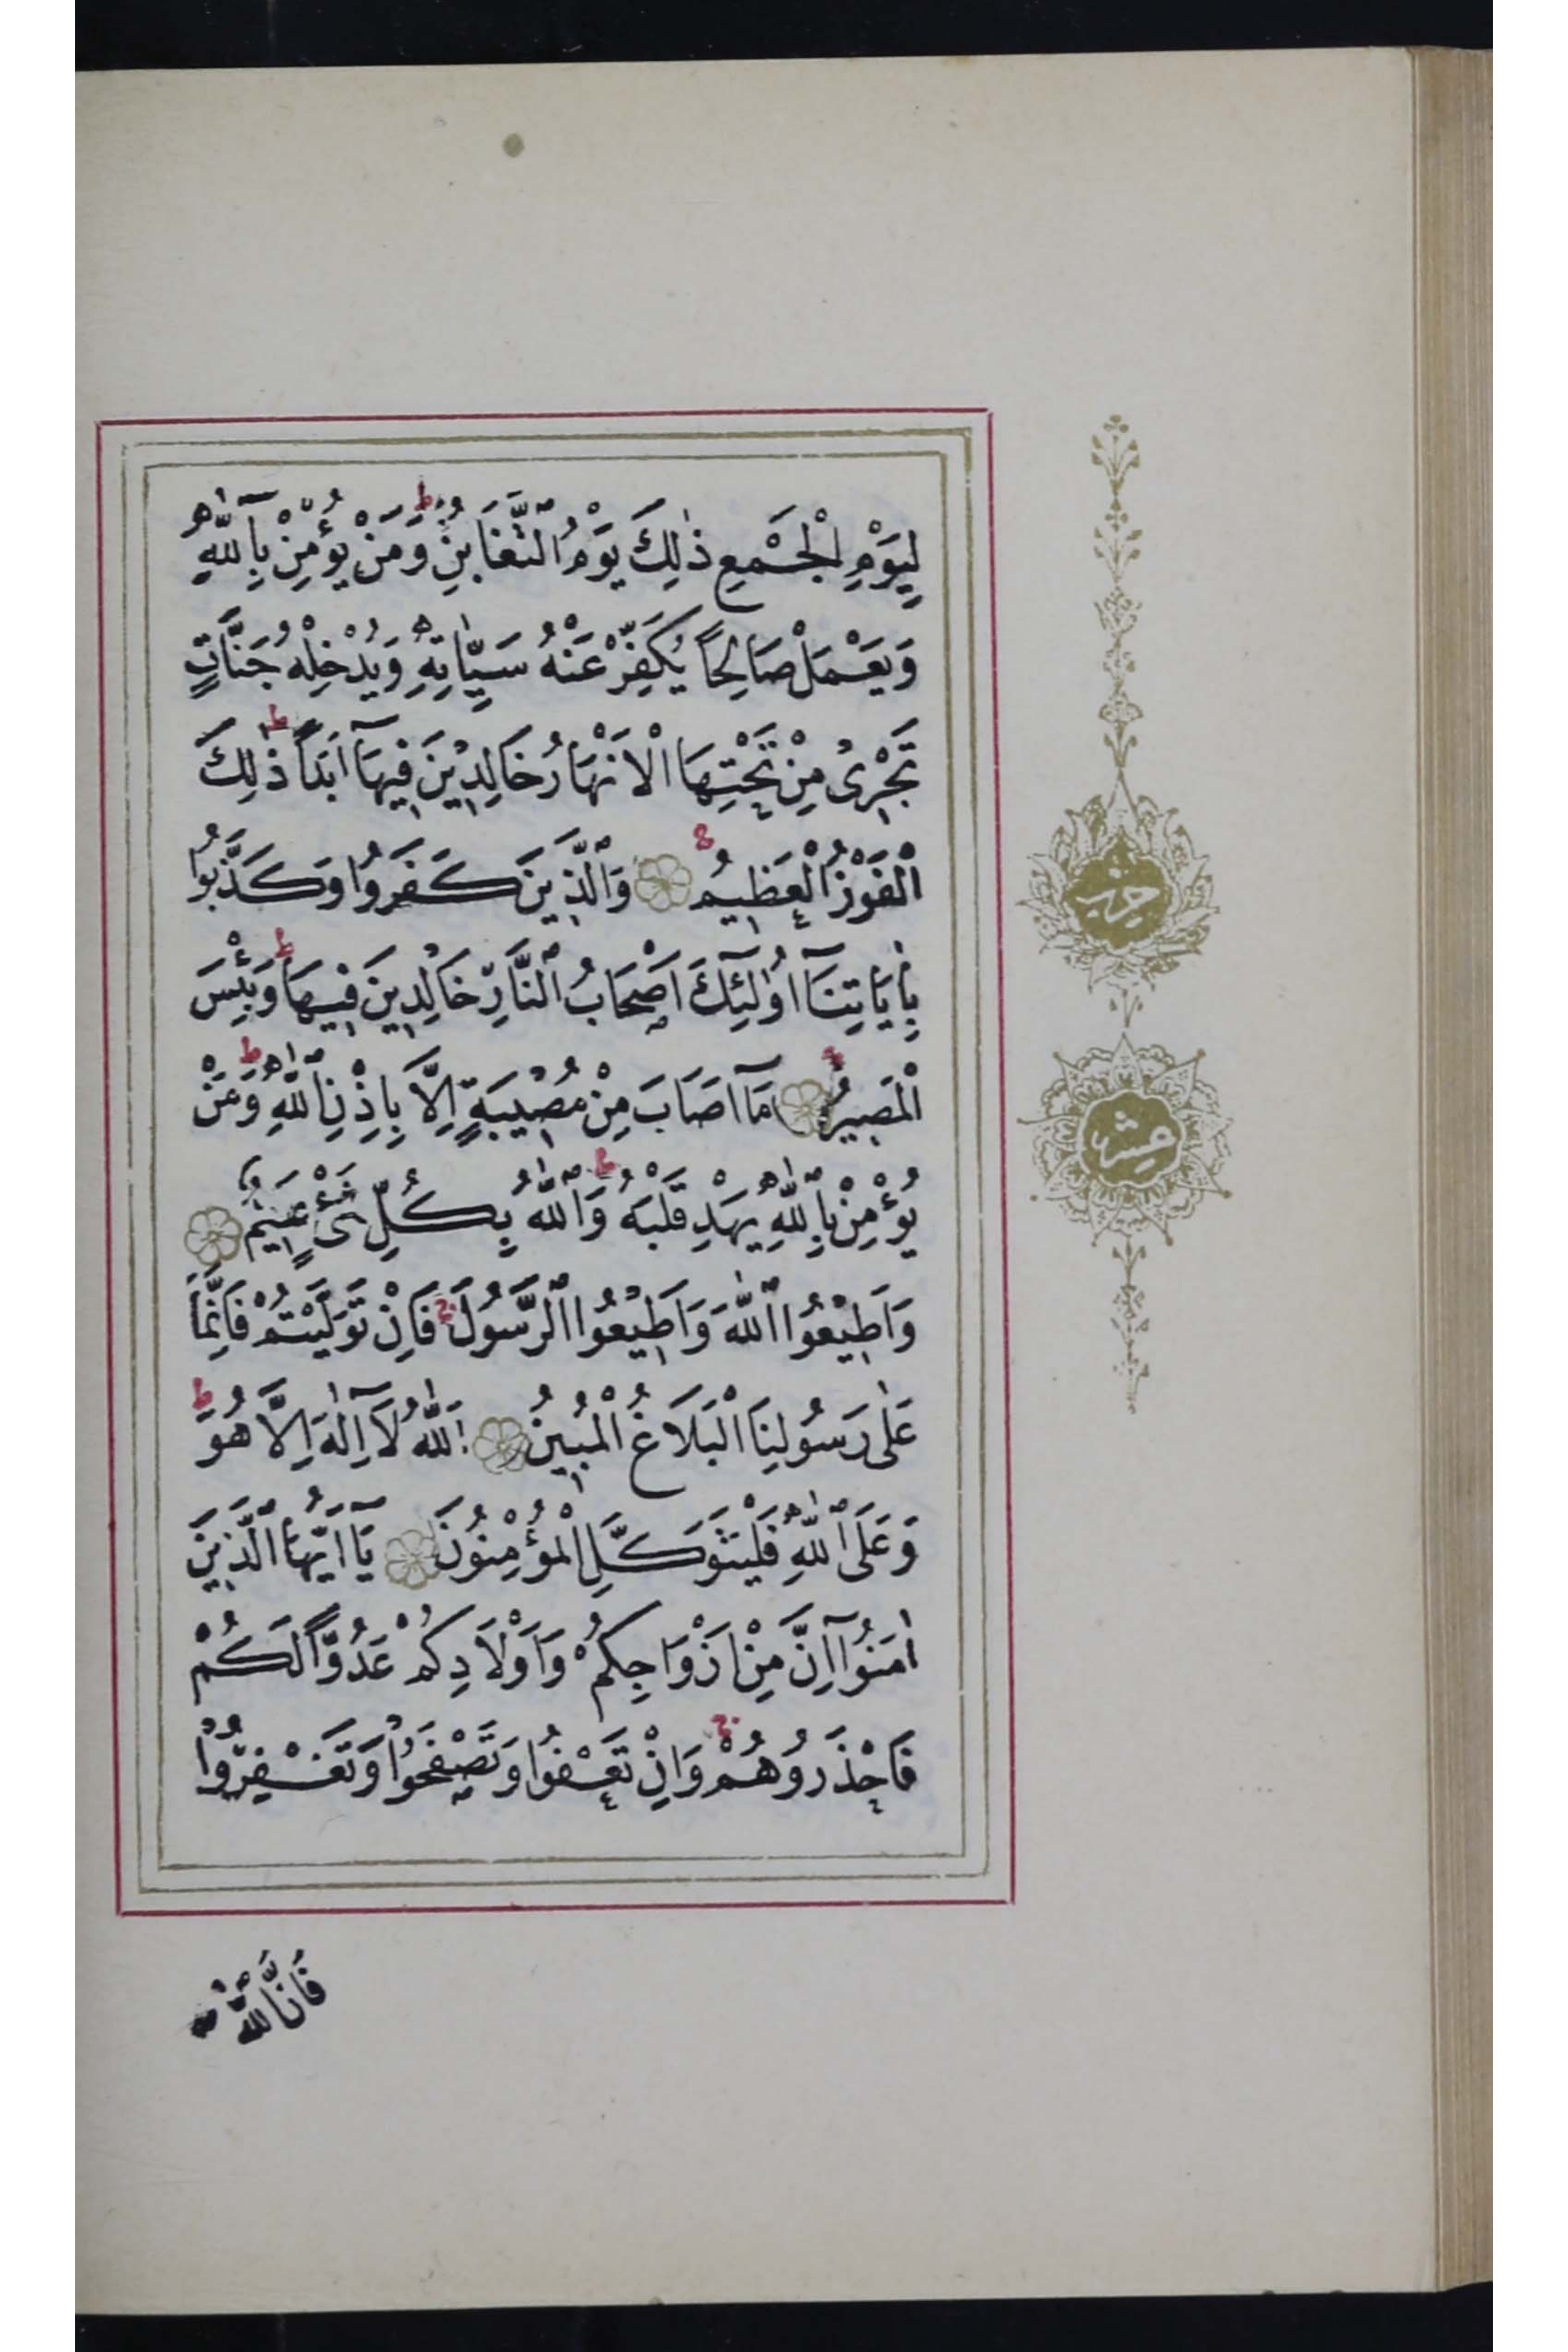 لِيَوْمِ الْجَمْعِ ذٰلِكَ يَوْمُ التَّغَابُنِ وَمَنْ يُؤْمِنْ بِاللّٰهِ
وَيَعْمَلْ صَالِحًا يُكَفِّرْ عَنْهُ سَيِّاٰتِهِ وَيُدْخِلْهُ جَنَّاتٍ
تَجْرِىْ مِنْ تَحْتِهَا الْاَنْهَارُ خَالِدِيْنَ فِيهَآ اَبَدًا ذٰلِكَ
الْفَوْزُ الْعَظِيمُ وَالَّذِينَ كَفَرُوا وَكَذَّبُوا
بِاٰيَاتِنَآ اُولٰٓئِكَ اَصْحَابُ النَّارِ خَالِدِينَ فِيهَا وَبِئْسَ
الْمَصِيرُ مَآ اَصَابَ مِنْ مُصِيْبَةٍ اِلَّا بِاِذْنِ اللّٰهِ وَمَنْ
يُؤْمِنْ بِاللّٰهِ يَهْدِ قَلْبَهُ وَاللّٰهُ بِكُلِّ شَىْءٍ عَلِيمٌ
وَاَطِيْعُوا اللّٰهَ وَاَطِيْعُوا الرَّسُولَ فَاِنْ تَوَلَّيْتُمْ فَاِنَّمَا
عَلٰى رَسُولِنَا الْبَلَاغُ الْمُبِينُ اَللّٰهُ لَآ اِلٰهَ اِلَّا هُوَ
وَعَلَى اللّٰهِ فَلْيَتَوَكَّلِ الْمُؤْمِنُونَ يَآ اَيُّهَا الَّذِينَ
اٰمَنُوْآ اِنَّ مِنْ اَزْوَاجِكُمْ وَاَوْلَادِكُمْ عَدُوًّا لَكُمْ
فَاحْذَرُوهُمْ وَاِنْ تَعْفُوا وَتَصْفَحُوْا وَتَغْفِرُوْا
فَاِنَّ اللّٰهَ
حزب
عشر